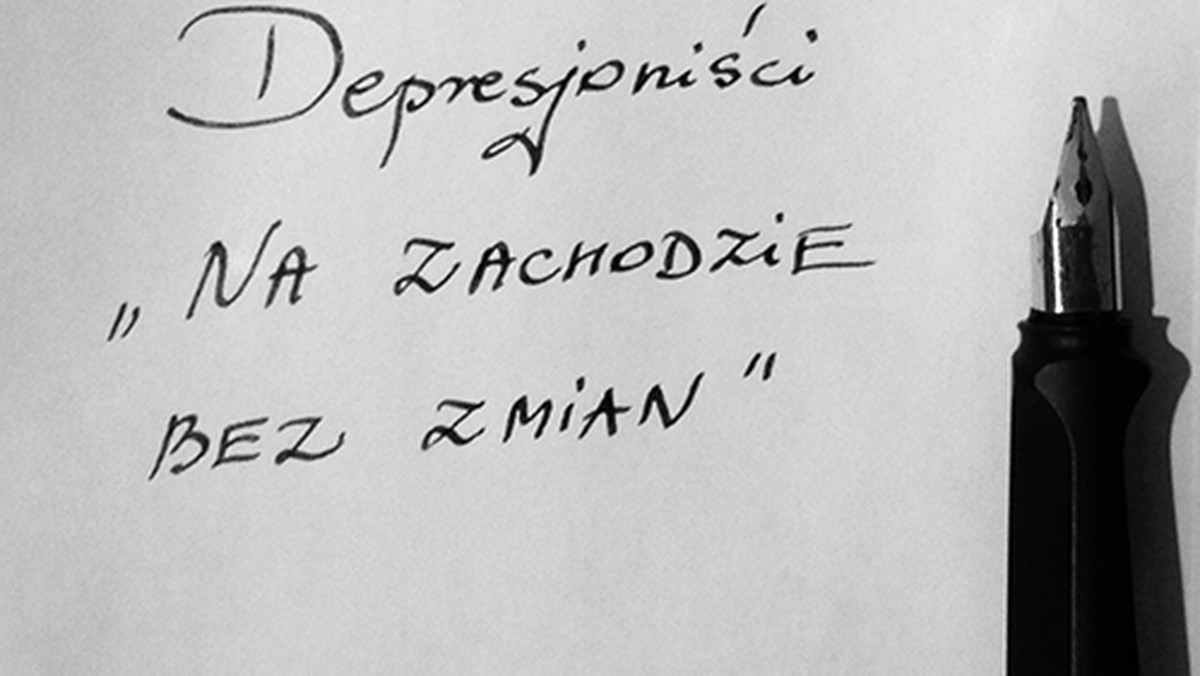 Depresjoniści
„NA ZACHODZiE
BEZ ZMiAN"